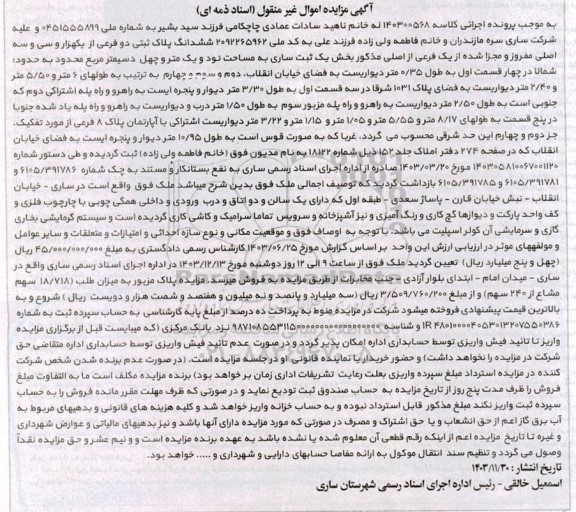 آگهی مزایده اموال غیر منقول (اسناد ذمه ای)
به موجب پرونده اجرائی کلاسه ۱۴۰۳۰۰۵۶۸ له خانم ناهید سادات عمادی چاچکامی فرزند سید بشیر به شماره ملی ۰۴۵۱۵۵۵۸۹۹ و علیه
شرکت ساری سره مازندران و خانم فاطمه ولی زاده فرزند علی به کد ملی ۲۰۹۲۲۶۵۹۶۲ ششدانگ پلاک ثبتی دو فرعی از یکهزار و سی و سه
اصلی مفروز و مجزا شده از یک فرعی از اصلی مذکور بخش یک ثبت ساری به مساحت نود و یک متر و چهل دسیمتر مربع محدود به حدود:
شمالا در چهار قسمت اول به طول ۰/۳۵ متر دیواریست به فضای خیابان انقلاب، دوم و سوم و چهارم به ترتیب به طولهای ۶ متر و ۵/۵۰ متر
و ۲/۴۰ متر دیواریست به فضای پلاک ۱۰۳۱ شرقا در سه قسمت اول به طول ۳/۳۰ متر دیوار و پنجره ایست به راهرو و راه پله اشتراکی دوم که
جنوبی است به طول ۲/۵۰ متر دیواریست به راهرو و راه پله مزبور سوم به طول ۱/۵۰ متر درب و دیواریست به راهرو و راه پله یاد شده جنوبا
در پنج قسمت به طولهای ۸/۱۷ متر و ۵/۵۵ متر و ۱/۰۵ متر و ۱/۱۵ متر و ۳/۲۲ متر دیواریست اشتراکی با آپارتمان پلاک ۸ فرعی از مورد تفکیک.
جز دوم و چهارم این حد شرقی محسوب می گردد. غربا که به صورت قوس است به طول ۱۰/۹۵ متر دیوار و پنجره ایست به فضای خیابان
انقلاب که در صفحه ۲۷۴ دفتر املاک جلد ۱۵۲ ذیل شماره ۱۸۱۲۲ به نام مدیون فوق (خانم فاطمه ولی زاده) ثبت گردیده و طی دستور شماره
۱۴۰۳۰۵۸۱۰۰۶۷۰۰۱۱۲۰ مورخ ۱۴۰۳/۰۳/۲۰ صادره از اداره اجرای اسناد رسمی ساری به نفع بستانکار و مستند به چک شماره ۶۱۰۵/۳۹۱۷۸۶ و
۶۱۰۵/۳۹۱۷۸۱ و ۶۱۰۵/۳۹۱۷۸۵ بازداشت گردید که توصیف اجمالی ملک فوق بدین شرح میباشد ملک فوق واقع است در ساری - خیابان
انقلاب - نبش خیابان قارن - پاساژ سعدی - طبقه اول که دارای یک سالن و دو اتاق و درب ورودی و داخلی همگی چوبی با چارچوب فلزی و
کف واحد پارکت و دیوارها گچ کاری و رنگ آمیزی و نیز آشپزخانه و سرویس تماما سرامیک و کاشی کاری گردیده است و سیستم گرمایشی بخاری
گازی و سرمایشی آن کولر اسپلیت می باشد. با توجه به اوصاف فوق و موقعیت مکانی و نوع سازه احداثی و امتیازات و متعلقات و سایر عوامل
و مولفه‍های موثر در ارزیابی ارزش این واحد بر اساس گزارش مورخ ۱۴۰۳/۰۶/۲۵ کارشناس رسمی دادگستری به مبلغ ۴۵/۰۰۰/۰۰۰/۰۰۰ ریال
(چهل و پنج میلیارد ریال) تعیین گردید ملک فوق از ساعت ۹ الی ۱۲ روز دوشنبه مورخ ۱۴۰۳/۱۲/۱۳ در اداره اجرای اسناد رسمی ساری واقع در
ساری - میدان امام - ابتدای بلوار آزادی - جنب مخابرات از طریق مزایده به فروش میرسد مزایده پلاک مزبور به میزان طلب (۱۸/۷۱۸ سهم
مشاع از ۲۴۰ سهم) و از مبلغ ۳/۵۰۹/۷۶۰/۲۰۰ ریال (سه میلیارد و پانصد و نه میلیون و هفتصد و شصت هزار و دویست ریال) شروع و به
بالاترین قیمت پیشنهادی فروخته میشود شرکت در مزایده منوط به پرداخت ده درصد از مبلغ پایه کارشناسی به حساب سپرده ثبت به شماره
و شناسه نزد بانک مرکزی (که میبایست قبل از برگزاری مزایده
واریز تا تائید فیش واریزی توسط حسابداری اداره امکان پذیر گردد و در صورت عدم تائید فیش واریزی توسط حسابداری اداره متقاضی حق
شرکت در مزایده را نخواهد داشت) و حضور خریدار یا نماینده قانونی او در جلسه مزایده است. (در صورت عدم برنده شدن شخص شرکت
کننده در مزایده استرداد مبلغ سپرده واریزی بعلت رعایت تشریفات اداری زمان بر خواهد بود) برنده مزایده مکلف است ما به التفاوت مبلغ
فروش را ظرف مدت پنج روز از تاریخ مزایده به حساب صندوق ثبت تودیع نماید و در صورتی که ظرف مهلت مقرر مانده فروش را به حساب
سپرده ثبت واریز نکند مبلغ مذکور قابل استرداد نبوده و به حساب خزانه واریز خواهد شد و کلیه هزینه های قانونی و بدهیهای مربوط به
آب برق گاز اعم از حق انشعاب و یا حق اشتراک و مصرف در صورتی که مورد مزایده دارای آنها باشد و نیز بدهیهای مالیاتی و عوارض شهرداری
و غیره تا تاریخ مزایده اعم از اینکه رقم قطعی آن معلوم شده یا نشده باشد به عهده برنده مزایده است و و نیم عشر و حق مزایده نقداً
وصول می گردد و تنظیم سند انتقال موکول به ارائه مفاصا حسابهای دارایی و شهرداری و ..... خواهد بود.
تاریخ انتشار: ۱۴۰۳/۱۱/۳۰
اسمعیل خالقی - رئیس اداره اجرای اسناد رسمی شهرستان ساری